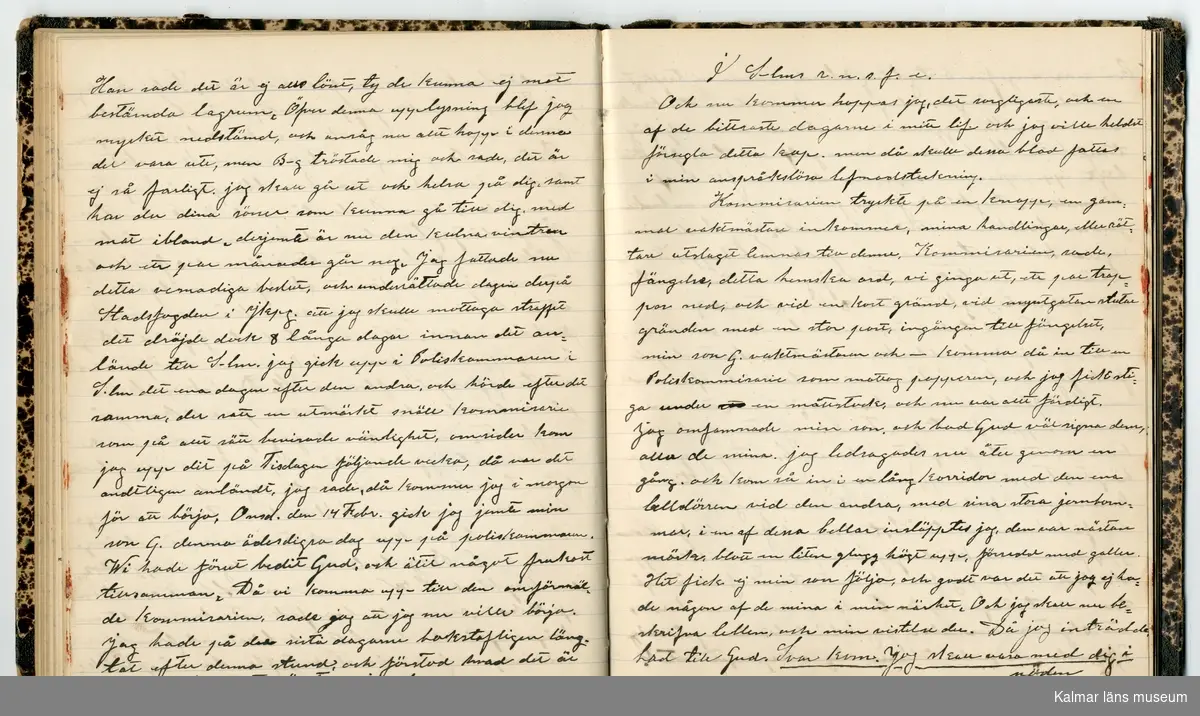 Han sade det är ej alls lönt, ty de kunna ej mot
bestämda lagrum. Öfver denna upplysning blef jag
mycket nedstämd, och ansåg nu allt hopp i denna
del vara ute, men B-g tröstade mig och sade, det är
ej så farligt. jag skall gå ut och helsa på dig, samt
har du dina söner som kunna gå till dig med
mat ibland, derjemte är nu den kulna vintren
och ett par månader går nog. Jag fattade nu
detta vemodiga beslut, och underättade dagen derpå
Stadsfogden i Jkpg. att jag skulle mottaga straffet
det dröjde dock 8 långa dagar innan det an-
lände till S-lm. jag gick upp i Poliskammaren i
S-lm det ena dagen efter den andra, och hörde efter det
samma, der satt en utmärkt snäll kommisarie
som på allt sätt bevisade vänlighet, omsider kom
jag upp dit på Tisdagen följande vecka, då var det
andtligen anländt, jag sade, då kommer jag i morgon
för att börja, Onsd. den 14 Febr. gick jag jemte min
son G. denna ödesdigra dag upp på poliskammaren.
Wi hade förut bedit Gud, och ätit något frukost
tillsamman. Då vi komma upp till den omförmäl-
de kommisarien, sade jag att jag nu ville börja.
Jag hade på de sista dagarne bokstafligen läng-
tat efter denna stund, och förstod hvad det är
I S-lms r. n. s. f. e.
Och nu kommer hoppas jag, det sorgligaste, och en
af de bittraste dagarne i mitt lif och jag ville heldst
försegla detta kap. men då skulle dessa blad fattas
i min anspråkslösa lefnadsteckning.
Kommisarien tryckte på en knapp, en gam-
mal vaktmästare inkommer, mina handlingar, eller rät-
tare utslaget lemnas till denne, Kommisarien, sade,
fängelse, detta hemska ord, vi gingo ut, ett par trap-
por ned, och vid en kort gränd, vid myntgatan slutar
gränden med en stor port, ingången till fängelset,
min son G. vaktmästaren och — komma då in till en
Poliskommisarie som mottog papperen, och jag fick sti-
ga under en måttstock, och nu var allt färdigt.
Jag omfamnade min son, och bad Gud välsigna dem,
alla de mina. jag ledsagades nu åter genom en
gång, och kom så in i en lång korridor med den ena
celldörren vid den andra, med sina stora jernbom-
mar, i en af dessa cellar insläpptes jag, den var nästan
mörk, blott en liten glugg högt upp, försedd med galler.
Hit fick ej min son följa, och godt var det att jag ej ha-
de någon af de mina i min närhet. Och jag skall nu be-
skrifva cellen, och min vistelse der. Då jag inträdde
bad till Gud. Svar kom. Jag skall vara med dig i
nöden
Kalmar läns museum